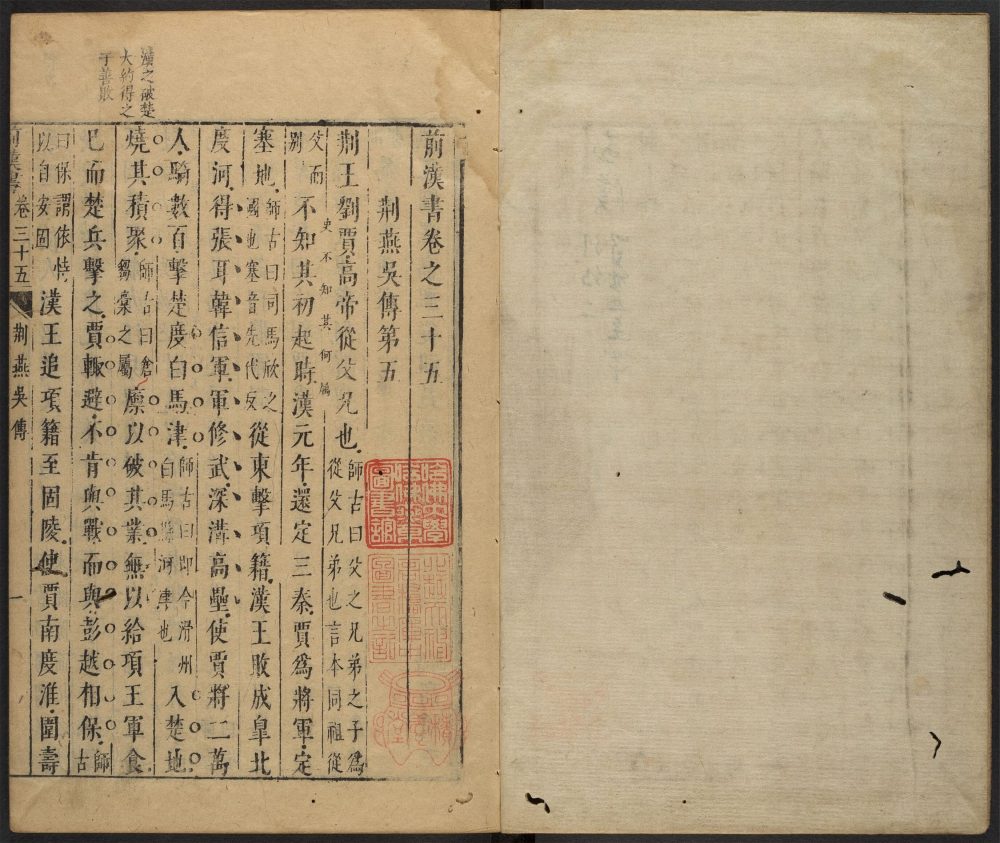 漢之破楚
大約得之
于善敗
前漢書卷之三十五
荆燕吳傳第五
荆王劉賈高帝從父兄也師古曰父之兄弟之子爲從父兄弟也言本同祖從
父而別史不知其何屬不知其初起時漢元年還定三秦賈爲將軍定
塞地師古曰司馬欣之國也塞音先代反從東擊項籍漢王敗成皐北
度河得張耳韓信軍軍修武深溝高壘使賈將二萬
人騎數百擊楚度白馬津師古曰即今滑州白馬縣河津也入楚地
燒其積聚師古曰倉廩芻藁之屬以破其業無以給項王軍食
已而楚兵擊之賈輒避不肯與戰而與彭越相保師古
曰保謂依恃以自安固漢王追項籍至固陵使賈南度淮圍壽
前漢書 卷三十五 荆燕吳傳 一
哈佛大學漢和圖書館